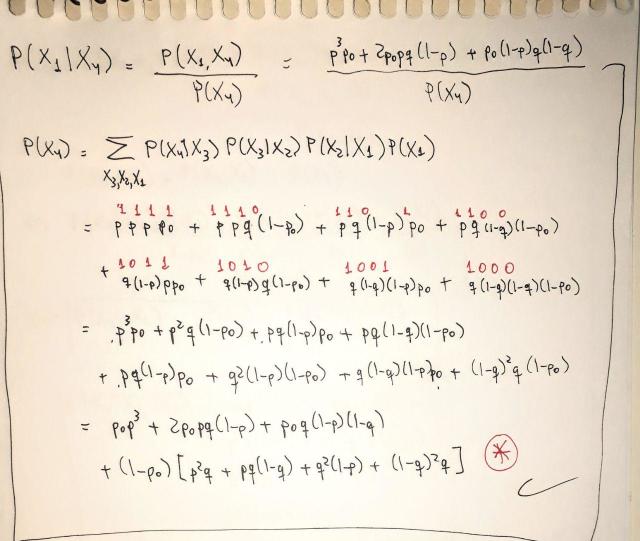 P(X₁|X₄) = P(X₁,X₄) / P(X₄) = p³p₀ + 2p₀pq(1-p) + p₀(1-p)q(1-q) / P(X₄)
P(X₄) = Σ P(X₄|X₃) P(X₃|X₂) P(X₂|X₁) P(X₁)
X₃,X₂,X₁
1 1 1 1 1 1 1 0 1 1 0 1 1 1 0 0
= p p p p₀ + p p q (1-p₀) + p q (1-p) p₀ + p q (1-q)(1-p₀)
1 0 1 1 1 0 1 0 1 0 0 1 1 0 0 0
+ q(1-p)pp₀ + q(1-p)q(1-p₀) + q(1-q)(1-p)p₀ + q(1-q)(1-q)(1-p₀)
= p³p₀ + p²q(1-p₀) + pq(1-p)p₀ + pq(1-q)(1-p₀)
+ pq(1-p)p₀ + q²(1-p)(1-p₀) + q(1-q)(1-p)p₀ + (1-q)²q(1-p₀)
= p₀p³ + 2p₀pq(1-p) + p₀q(1-p)(1-q)
+ (1-p₀)[p²q + pq(1-q) + q²(1-p) + (1-q)²q] *